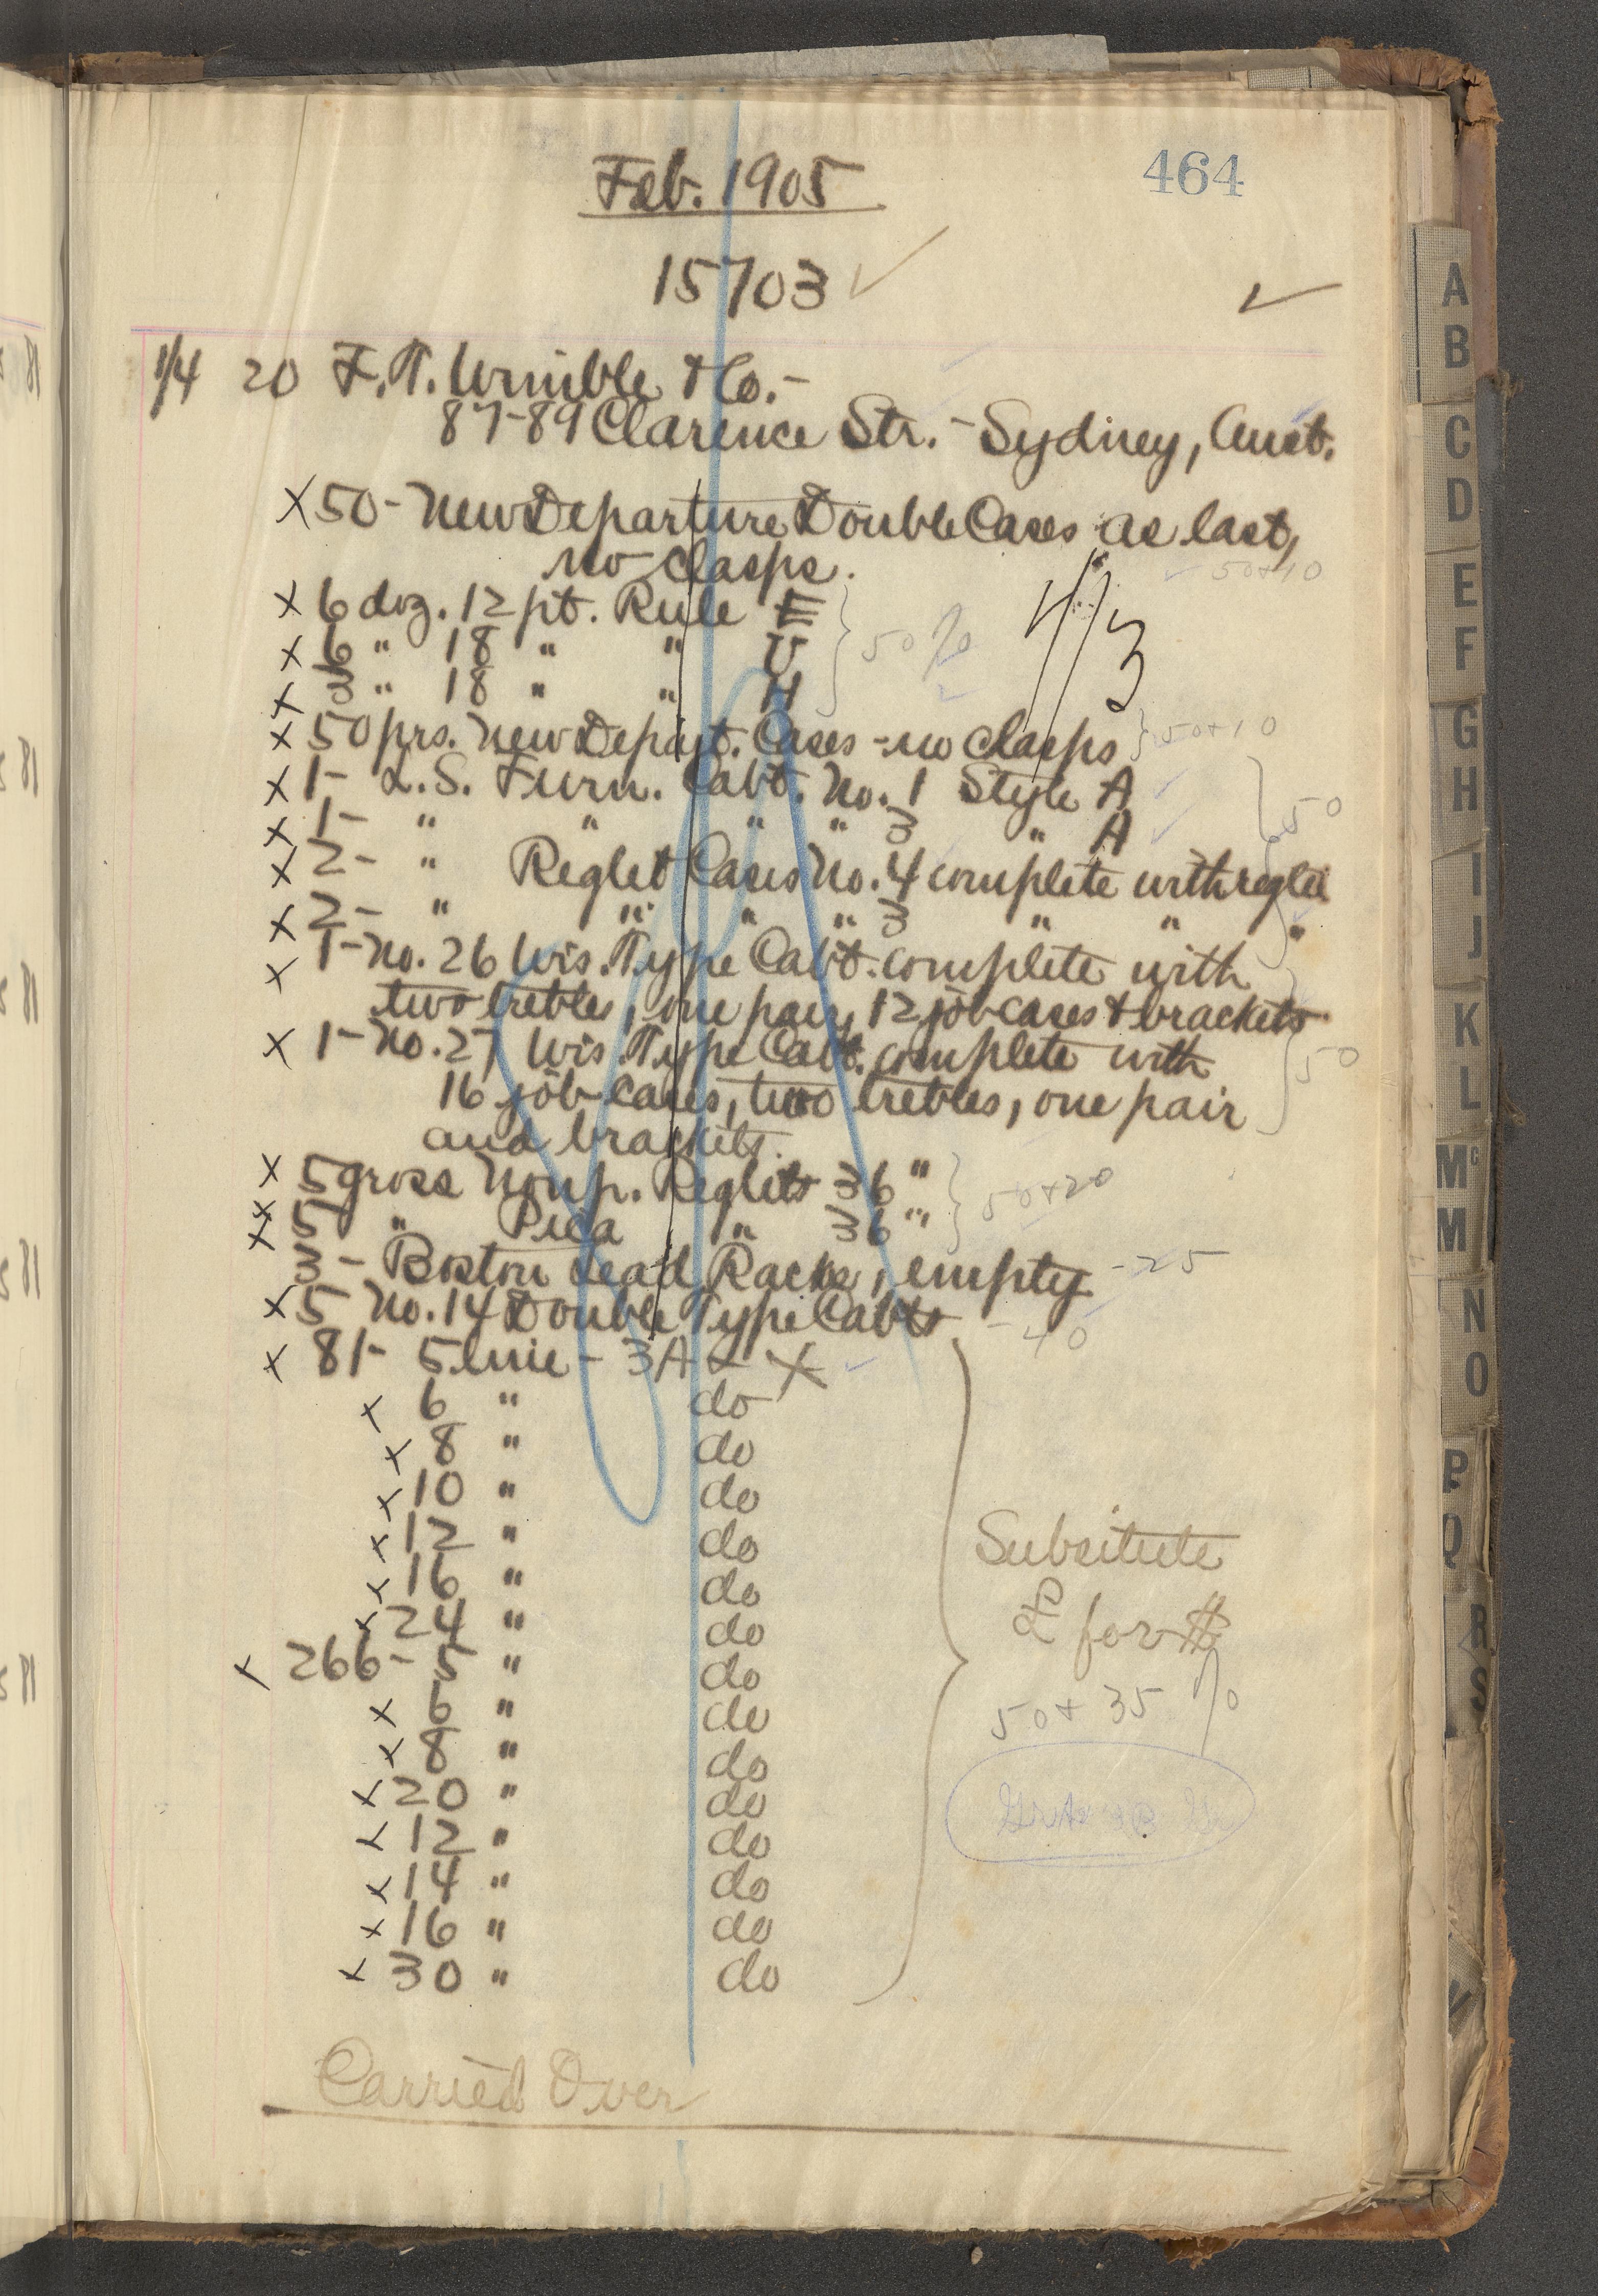 464
Feb. 1905
15703 ✓
✓
1/4 20 F. T. Wimble & Co.-
87-89 Clarence Str. - Sydney, Aust.
X 50 - New Departure Double Cases as last,
no clasps.
50+10
X 6 doz. 12 pt. Rule E
X 6 " 18 " " U
X 3 " 18 " " H
50%
4/3
X 50 prs. New Depart. Cases - no clasps } 50+10
X 1 - L. S. Furn. Cabt. No. 1 Style A
X 1 - " " " " 3 " A
50
X 2 - " Reglet Cases No. 4 complete with reglet
X 2 - " " " " 3 " " "
X 1 - No. 26 Wis. Type Cabt. complete with
two trebles, one pair, 12 job cases & brackets
X 1 - No. 27 Wis. Type Cabt. complete with
50
16 job cases, two trebles, one pair
and brackets.
X 5 gross Nonp. Reglets 36"
X 5 " Pica " 36"
50+20
X 3 - Boston Lead Racks, empty - 25
X 5 No. 14 Double Type Cabts - 40
X 81 - 5 line - 3A X
X 6 " do
X 8 " do
X 10 " do
X 12 " do
X 16 " do
X 24 " do
X 266 - 5 " do
X 6 " do
X 8 " do
X 20 " do
X 12 " do
X 14 " do
X 16 " do
X 30 " do
Subsitute
& for $
50+35 %
Carried Over
A
B
C
D
E
F
G
H
I
J
K
L
Mc
M
N
O
P
Q
R
S